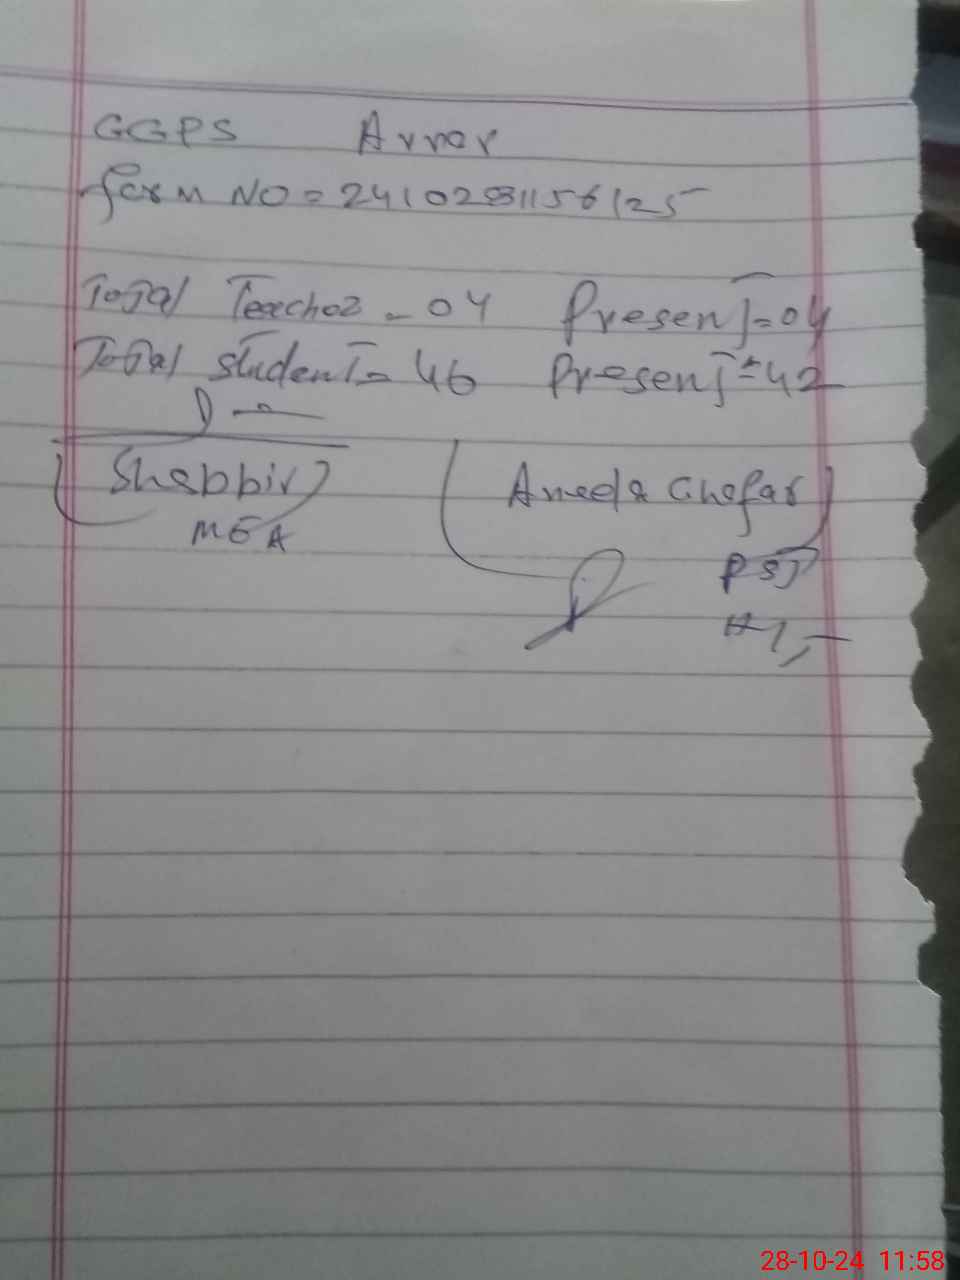 GGPS Arror
form NO = 2410281156125
Total Teacher - 04 Present = 04
Total student = 46 Present = 42
Shabbir
MEA
Aneela Ghafar
PST
28-10-24 11:58